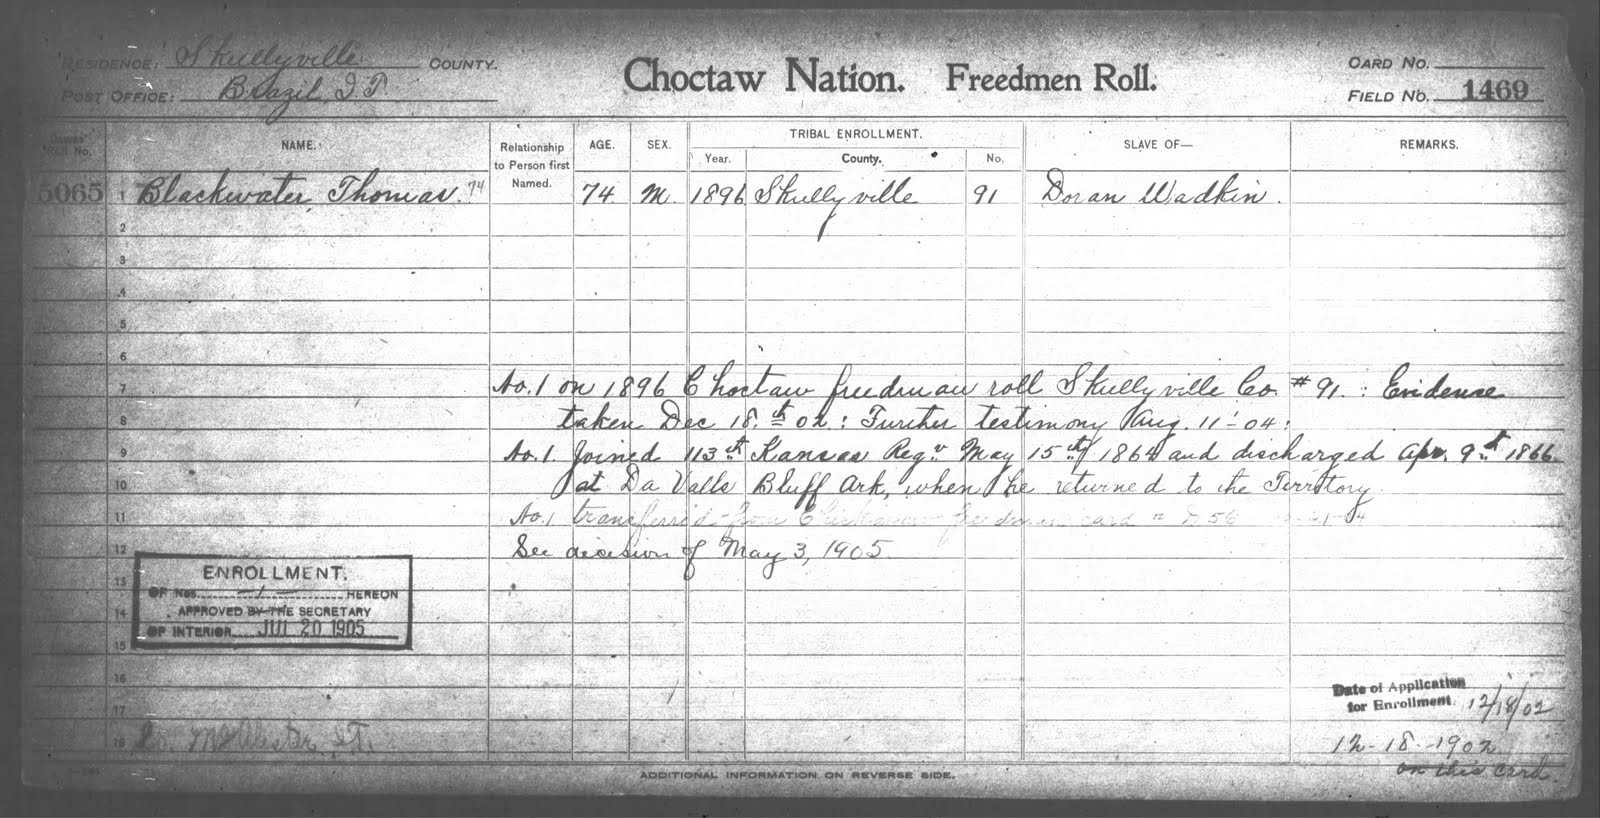 RESIDENCE: Skullyville COUNTY.
POST OFFICE: Brazil, I.T.
Choctaw Nation. Freedmen Roll.
CARD NO.
FIELD NO. 1469
Dawes' Roll No.
NAME.
Relationship to Person first Named.
AGE.
SEX.
TRIBAL ENROLLMENT.
Year. County. No.
SLAVE OF—
REMARKS.
5065 1 Blackwater, Thomas. 74 74 M. 1896 Skullyville 91 Doran Wadkin.
2
3
4
5
6
7 No. 1 on 1896 Choctaw freedman roll Skullyville Co. #91.: Evidense
8 taken Dec 18.th 02.: Further testimony Aug. 11-04:
9 No. 1. Joined 113th Kansas Reg. May 15th 1864 and discharged Apr. 9th 1866.
10 at Da Valls Bluff Ark, when he returned to the Territory
11 No. 1 transferred from freedman card # D 56
12 See decision of May 3, 1905.
13
14
15
16
17
18 McAlester, I.T.
ENROLLMENT.
OF NOS. — 1 — HEREON
APPROVED BY THE SECRETARY
OF INTERIOR JUL 20 1905
Date of Application
for Enrollment. 12/18/02
12-18-1902
on this card.
ADDITIONAL INFORMATION ON REVERSE SIDE.